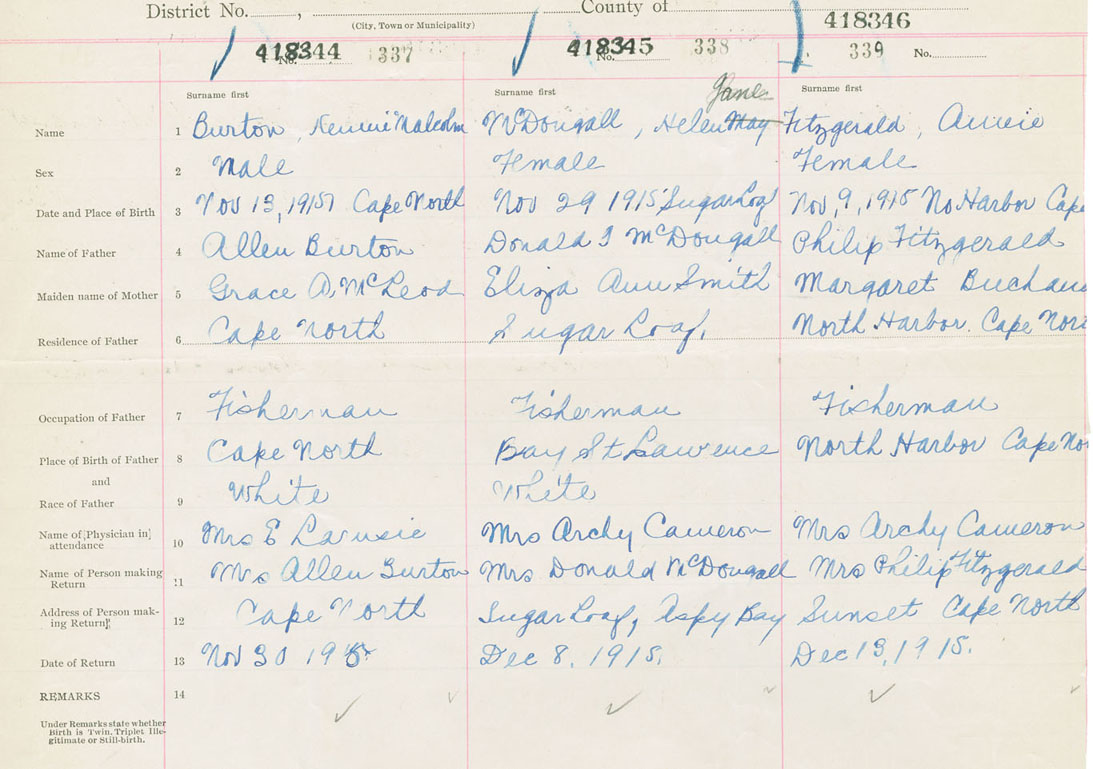 District No. , County of
(City, Town or Municipality)
418344 337 418345 338 418346
No. No. 339 No.
Surname first Surname first Surname first
Jane
Name 1 Burton, Kennie Malcolm McDougall, Helen May Fitzgerald, Annie
Sex 2 Male Female Female
Date and Place of Birth 3 Nov 13, 1915 Cape North Nov 29 1915 Sugar Loaf Nov, 9, 1915 No Harbor Cape
Name of Father 4 Allen Burton Donald J McDougall Philip Fitzgerald
Maiden name of Mother 5 Grace A. McLeod Eliza Ann Smith Margaret Buchan
Residence of Father 6 Cape North Sugar Loaf, North Harbor. Cape Nort
Occupation of Father 7 Fisherman Fisherman Fisherman
Place of Birth of Father 8 Cape North Bay St Lawrence North Harbor Cape No
and
Race of Father 9 White White
Name of [Physician in] attendance 10 Mrs E Mrs Archy Cameron Mrs Archy Cameron
Name of Person making Return 11 Mrs Allen Burton Mrs Donald McDougall Mrs Philip Fitzgerald
Address of Person making Return 12 Cape North Sugar Loaf, Aspy Bay Sunset Cape North
Date of Return 13 Nov 30 1915 Dec 8, 1915. Dec 13, 1915.
REMARKS 14
Under Remarks state whether
Birth is Twin, Triplet Ille-
gitimate or Still-birth.